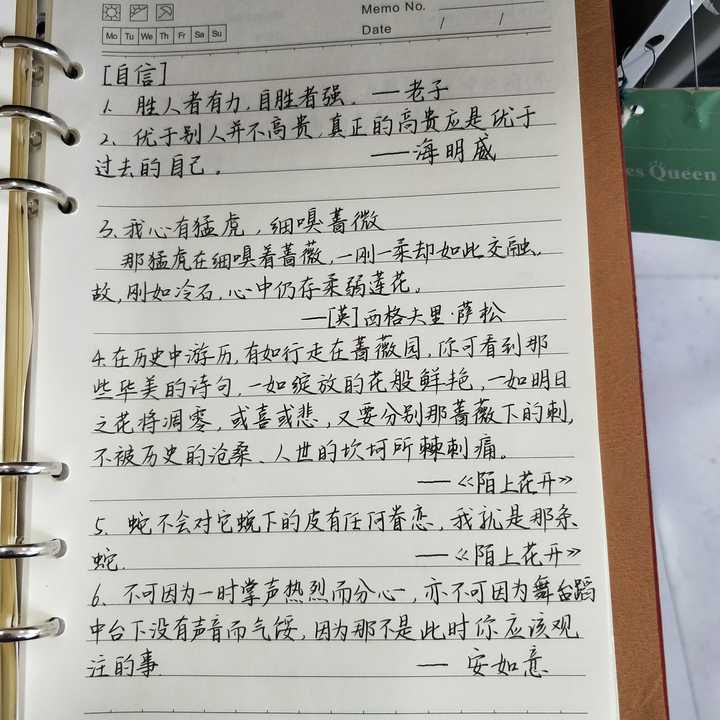 Memo No.
Mo Tu We Th Fr Sa Su
Date / /
[自信]
1. 胜人者有力,自胜者强. —老子
2、优于别人并不高贵,真正的高贵应是优于
过去的自己。 ——海明威
3、我心有猛虎,细嗅蔷薇
那猛虎在细嗅着蔷薇,一刚一柔却如此交融.
故,刚如冷石,心中仍存柔弱莲花。
—[英]西格夫里·萨松
4.在历史中游历,有如行走在蔷薇园,你可看到那
些华美的诗句,一如绽放的花般鲜艳,一如明日
之花将凋零,或喜或悲,又要分别那蔷薇下的刺,
不被历史的沧桑、人世的坎坷所棘刺痛。
—《陌上花开》
5. 蛇不会对它蜕下的皮有任何眷恋,我就是那条
蛇. —《陌上花开》
6、不可因为一时掌声热烈而分心,亦不可因为舞台蹈
中台下没有声音而气馁,因为那不是此时你应该观
注的事. — 安如意
es Queen